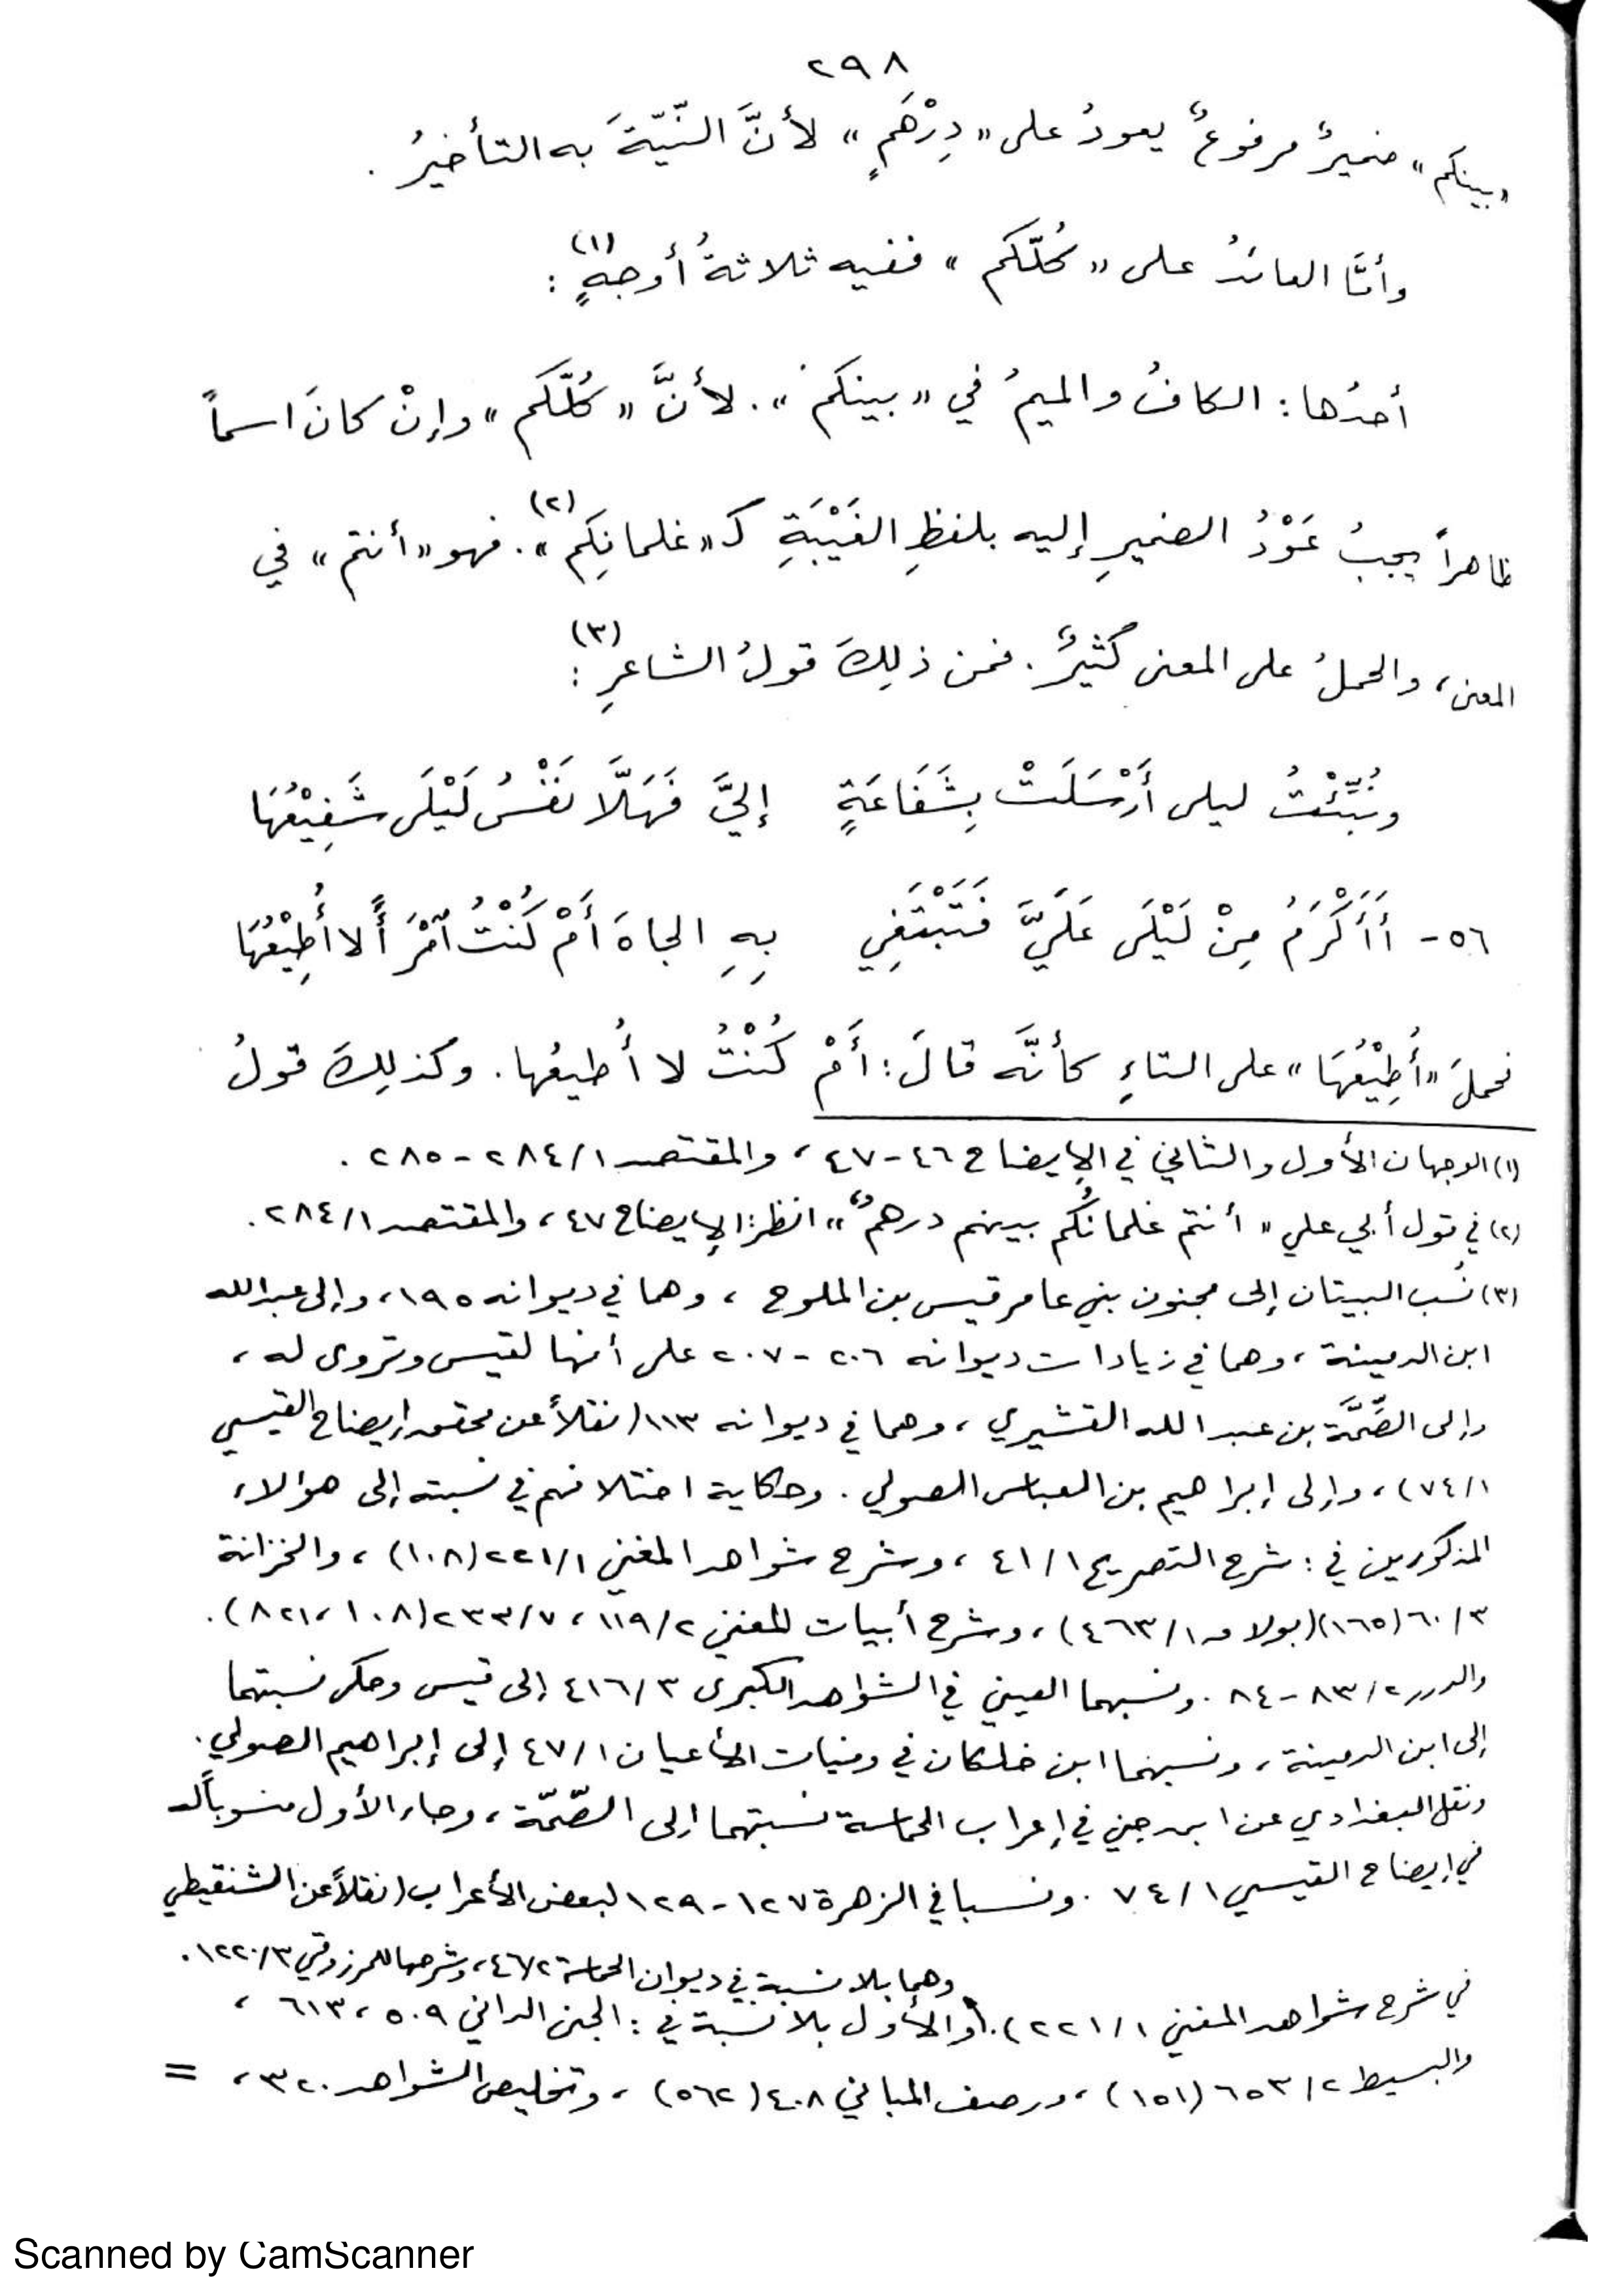 ٢٩٨
«بينكم» ضميرٌ مرفوعٌ يعودُ على «دِرْهَمٍ» لأنَّ النّيّةَ به التأخيرُ .
وأمَّا العائدُ على «كُلّكم» ففيه ثلاثةُ أوجهٍ(١) :
أحدُها : الكافُ والميمُ في «بينكم» . لأنَّ «كُلّكم» وإنْ كانَ اسماً
ظاهراً يجبُ عَوْدُ الضميرِ إليه بلفظِ الغَيْبَةِ كـ «غلمانِكم»(٢) . فهو «أنتم» في
المعنى ، والحملُ على المعنى كثيرٌ . فمن ذلِكَ قولُ الشاعرِ(٣) :
ونُبِّئْتُ ليلى أَرْسَلَتْ بِشَفَاعَةٍ إليَّ فَهَلَّا نَفْسُ لَيْلَى شَفِيْعُهَا
٥٦ - أَأَكْرَمُ مِنْ لَيْلَى عَلَيَّ فَتَبْتَغِي بِهِ الجاهَ أَمْ كُنْتُ امْرَأً لا أُطِيْعُهَا
فحملَ «أُطِيْعُهَا» على التاءِ كأنَّه قالَ : أَمْ كُنْتُ لا أُطيعُها . وكذلِكَ قولُ
(١) الوجهان الأول والثاني في الإيضاح ٤٦ - ٤٧ ، والمقتصد ١/٢٨٤ - ٢٨٥ .
(٢) في قول أبي علي «أنتم غلمانُكم بينهم درهمٌ» انظر : الإيضاح ٤٧ ، والمقتصد ١/٢٨٤ .
(٣) نُسب البيتان إلى مجنون بني عامر قيس بن الملوح ، وهما في ديوانه ١٩٥ ، وإلى عبدالله
ابن الدمينة ، وهما في زيادات ديوانه ٢٠٦ - ٢٠٧ على أنها لقيس وتروى له ،
وإلى الصِّمَّة بن عبدالله القشيري ، وهما في ديوانه ١١٣ (نقلاً عن محقق إيضاح القيسي
١/٧٤) ، وإلى إبراهيم بن العباس الصولي . وحكاية اختلافهم في نسبته إلى هؤلاء
المذكورين في : شرح التصريح ١/٤١ ، وشرح شواهد المغني ١/٢٢١ (١٠٨) ، والخزانة
٣/٦٠ (١٦٥) (بولاق ١/٤٦٣) ، وشرح أبيات المغني ٢/١١٩ ، ٧/٢٣٣ (١٠٨ ، ٨٢١) .
والدرر ٢/٨٣ - ٨٤ . ونسبهما العيني في الشواهد الكبرى ٣/٤١٦ إلى قيس وحكى نسبتهما
إلى ابن الدمينة ، ونسبهما ابن خلكان في وفيات الأعيان ١/٤٧ إلى إبراهيم الصولي .
ونقل البغدادي عن ابن جني في إعراب الحماسة نسبتهما إلى الصِّمّة ، وجاء الأول منسوباً له
في إيضاح القيسي ١/٧٤ . ونسبا في الزهرة ١٢٧ - ١٢٩ لبعض الأعراب (نقلاً عن الشنقيطي
وهما بلا نسبة في ديوان الحماسة ٢/٤٦ ، وشرحها للمرزوقي ٣/١٢٢٠ .
في شرح شواهد المغني ١/٢٢١) . والأول بلا نسبة في : الجنى الداني ٥٠٩ ، ٦١٣ ،
والبسيط ٢/٦٥٣ (١٥١) ، ورصف المباني ٤٠٨ (٥٦٢) ، وتخليص الشواهد ٣٢٠ ، =
Scanned by CamScanner